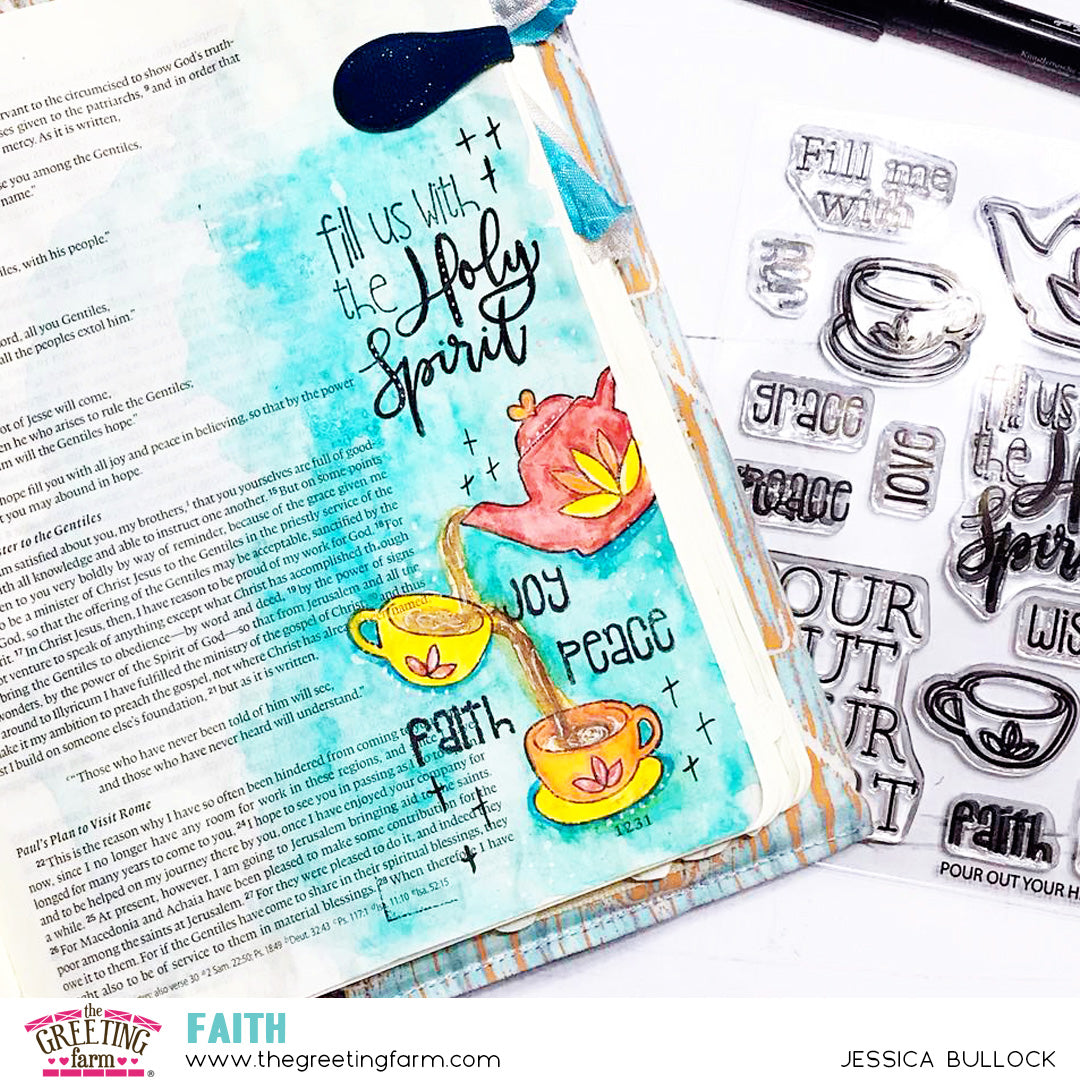 rvant to the circumcised to show God's truth-
ses given to the patriarchs, 9 and in order that
mercy. As it is written,
se you among the Gentiles,
name."
iles, with his people."
ord, all you Gentiles,
all the peoples extol him."
ot of Jesse will come,
en he who arises to rule the Gentiles;
im will the Gentiles hope."
hope fill you with all joy and peace in believing, so that by the power
t you may abound in hope.
ster to the Gentiles
m satisfied about you, my brothers, that you yourselves are full of good-
ith all knowledge and able to instruct one another. 15 But on some points
en to you very boldly by way of reminder, because of the grace given me
o be a minister of Christ Jesus to the Gentiles in the priestly service of the
God, so that the offering of the Gentiles may be acceptable, sanctified by the
rit. 17 In Christ Jesus, then, I have reason to be proud of my work for God. 18 For
ot venture to speak of anything except what Christ has accomplished through
bring the Gentiles to obedience—by word and deed, 19 by the power of signs
wonders, by the power of the Spirit of God—so that from Jerusalem and all the
around to Illyricum I have fulfilled the ministry of the gospel of Christ, 20 and thus
ake it my ambition to preach the gospel, not where Christ has already named,
st I build on someone else's foundation, 21 but as it is written,
"Those who have never been told of him will see,
and those who have never heard will understand."
Paul's Plan to Visit Rome
22 This is the reason why I have so often been hindered from coming to
now, since I no longer have any room for work in these regions, and since
longed for many years to come to you, 24 I hope to see you in passing as I go to
and to be helped on my journey there by you, once I have enjoyed your company for
a while. 25 At present, however, I am going to Jerusalem bringing aid to the saints.
26 For Macedonia and Achaia have been pleased to make some contribution for the
poor among the saints at Jerusalem. 27 For they were pleased to do it, and indeed they
owe it to them. For if the Gentiles have come to share in their spiritual blessings, they
ght also to be of service to them in material blessings. 28 When therefore I have
also verse 30 Deut. 32:43 Ps. 117:1 11:10 Isa. 52:15
2 Sam. 22:50; Ps. 18:49
fill us with
the Holy
Spirit
Joy
peace
faith
1231
Fill me
with
grace
love
peace
fill us
the H
Spiri
OUR
UT
UR
RT
wis
faith
POUR OUT YOUR H
the
GREETING
farm
®
FAITH
www.thegreetingfarm.com
JESSICA BULLOCK